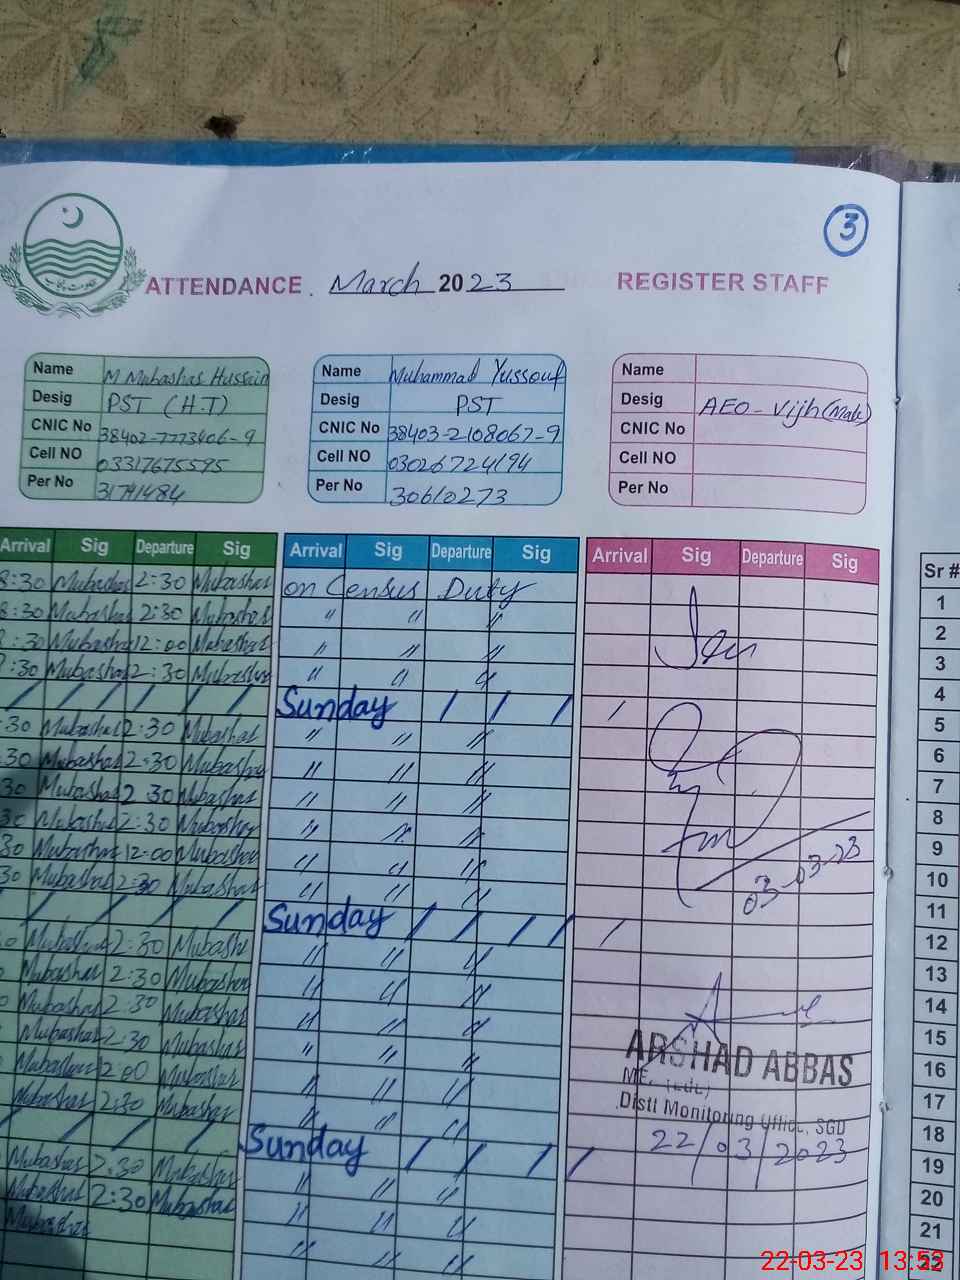 3
ATTENDANCE March 2023 REGISTER STAFF
Name M Mubashar Hussain Name Muhammad Yussouf Name
Desig PST (H.T) Desig PST Desig AEO-Vijh (Male)
CNIC No 38402-7773406-9 CNIC No 38403-2108067-9 CNIC No
Cell NO 03317675595 Cell NO 03026724194 Cell NO
Per No 31791484 Per No 30610273 Per No
Arrival Sig Departure Sig Arrival Sig Departure Sig Arrival Sig Departure Sig Sr #
8:30 Mubashar 2:30 Mubashar on Census Duty 1
8:30 Mubashar 2:30 Mubashar " " " 2
:30 Mubashar 12:00 Mubashar " " " 3
:30 Mubashar 2:30 Mubashar " " " 4
/ / / / Sunday / / / / 5
30 Mubashar 2:30 Mubashar " " " 6
30 Mubashar 2:30 Mubashar " " " 7
30 Mubashar 2 30 Mubashar " " " 8
30 Mubashar 2:30 Mubashar " " " 9
30 Mubashar 12:00 Mubashar " " " 10
30 Mubashar 2:30 Mubashar " " " 03-03-23 11
/ / / / Sunday / / / / 12
Mubashar 2:30 Mubashar " " " 13
Mubashar 2:30 Mubashar " " " 14
Mubashar 2:30 Mubashar " " " 15
Mubashar 2:30 Mubashar " " " ARSHAD ABBAS 16
Mubashar 12:00 Mubashar " " " 17
Mubashar 2:30 Mubashar " " " Distt Monitoring Office, SGD 18
/ / / / Sunday / / / / 22/03/2023 19
Mubashar 2:30 Mubashar " " " 20
Mubashar 2:30 Mubashar " " " 21
Mubashar " " " 22
22-03-23 13:53